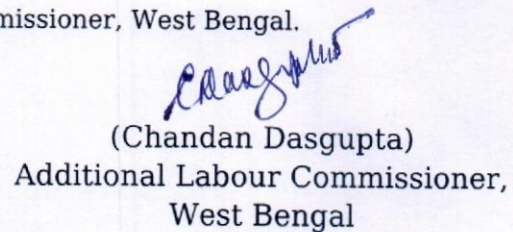 missioner, West Bengal.
CDasgupta
(Chandan Dasgupta)
Additional Labour Commissioner,
West Bengal